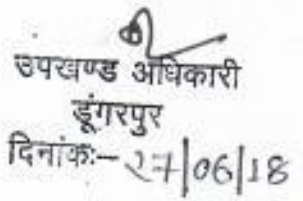 उपखण्ड अधिकारी
डूंगरपुर
दिनांकः- 27/06/18